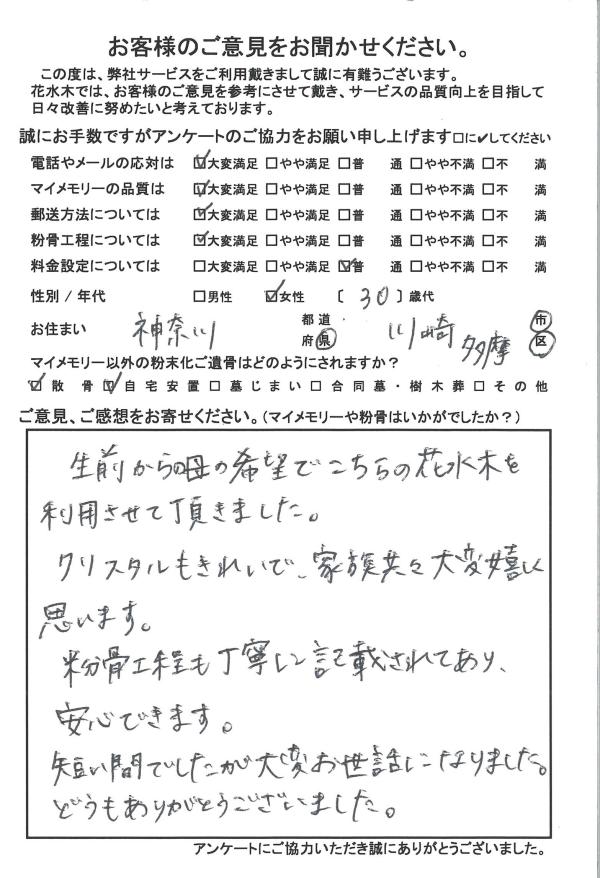 お客様のご意見をお聞かせください。
この度は、弊社サービスをご利用戴きまして誠に有難うございます。
花水木では、お客様のご意見を参考にさせて戴き、サービスの品質向上を目指して
日々改善に努めたいと考えております。
誠にお手数ですがアンケートのご協力をお願い申し上げます□に✔してください
電話やメールの応対は ☑大変満足 □やや満足 □普 通 □やや不満 □不 満
マイメモリーの品質は ☑大変満足 □やや満足 □普 通 □やや不満 □不 満
郵送方法については ☑大変満足 □やや満足 □普 通 □やや不満 □不 満
粉骨工程については ☑大変満足 □やや満足 □普 通 □やや不満 □不 満
料金設定については □大変満足 □やや満足 ☑普 通 □やや不満 □不 満
性別 / 年代 □男性 ☑女性 〔 30 〕歳代
お住まい 神奈川 都道府県 川崎 多摩 市区
マイメモリー以外の粉末化ご遺骨はどのようにされますか?
☑散 骨 ☑自宅安置 □墓じまい □合同墓・樹木葬 □その他
ご意見、ご感想をお寄せください。(マイメモリーや粉骨はいかがでしたか?)
生前からの母の希望でこちらの花水木を
利用させて頂きました。
クリスタルもきれいで、家族共々大変嬉しく
思います。
粉骨工程も丁寧に記載されてあり、
安心できます。
短い間でしたが大変お世話になりました。
どうもありがとうございました。
アンケートにご協力いただき誠にありがとうございました。